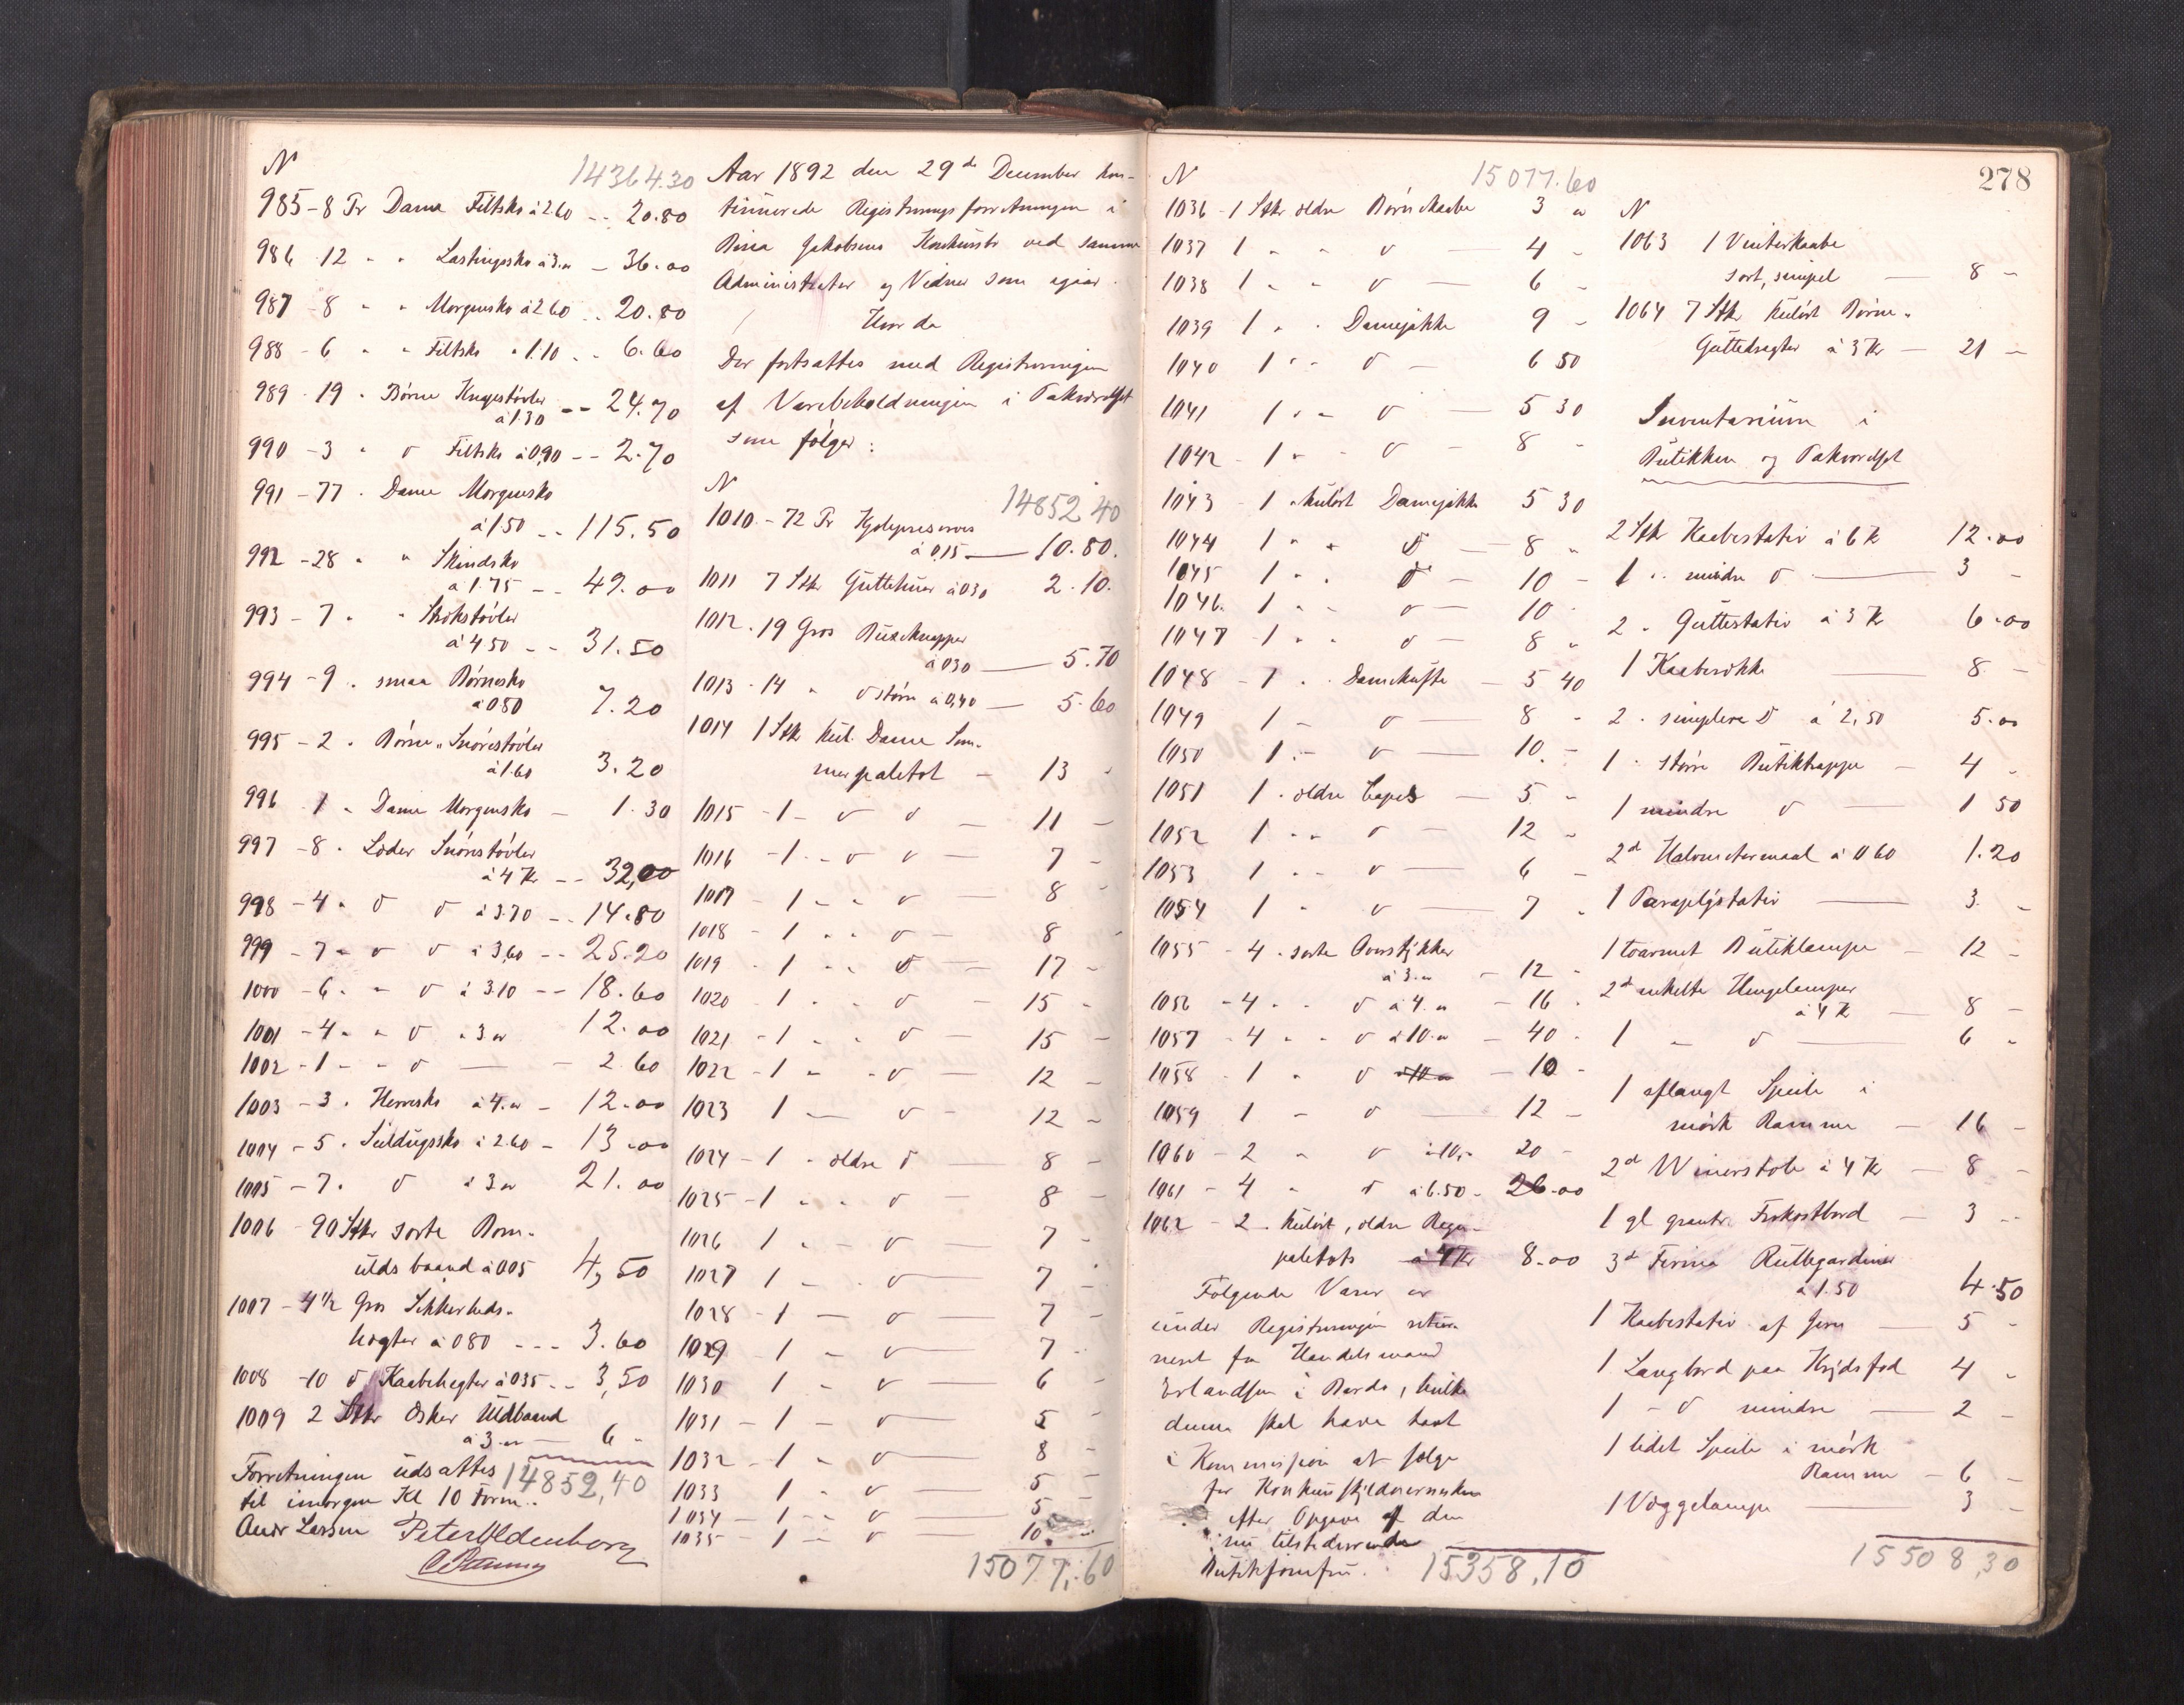 N
14364.30
985-8 Pr Dame Filtsko à 2.60 -- 20.80
986 12 " " Lastingssko à 3.„ - 36.00
987 -8 " " Morgensko à 2.60 -- 20.80
988 -6 " " Filtsko " 1.10 -- 6.60
989 -19 " Børne Knapestøvler
à 1.30 -- 24.70
990 -3 " d Filtsko à 0,90 -- 2.70
991 -77 " Dame Morgensko
à 1.50 -- 115.50
992 -28 " " Skindsko
à 1.75 -- 49.00
993 -7 " "
à 4.50 -- 31.50
994 -9 " smaa Børnesko
à 0.80 7.20
995 -2 " Børne-Snørestøvler
à 1.60 3.20
996 1 " Dame Morgensko - 1.30
997 -8 " Læder Snørestøvler
à 4 Kr -- 32,00
998 -4 " d d à 3.70 -- 14.80
999 -7 " d d à 3,60 -- 25.20
1000 -6 " " d à 3.10 -- 18.60
1001 -4 " " d à 3 „ 12.00
1002 -1 " " d — - 2.60
1003 -3 " Herresko à 4.„ - 12.00
1004 -5 " Seildugssko à 2.60 - 13.00
1005 -7 " d à 3 „ 21.00
1006 -90 Stkr sorte Bom-
ulds baand à 0.05 4,50
1007 -4 1/2 Gros Sikkerheds-
hægter à 0.80 --- 3.60
1008 -10 d Kaabehegter à 0.35 -- 3,50
1009 2 Stkr Æsker Uldbaand
à 3.„ — 6 -
Forretningen udsattes 14852,40
til imorgen Kl 10 Form..
Andr Larsen Peter Oldenborg
Aar 1892 den 29de December kon-
tinuerede Registreringsforretningen i
Jakobsens Konkursbo ved samme
Administrator og Vidner som igaar.
Hvor da
Der fortsattes med Registreringen
af Varebeholdningen i Pakværelset
som følger:
N
14852.40
1010 -72 Pr Kjolepreserver
à 0,15 — 10.80.
1011 7 Stkr Guttehuer à 0.30 2.10.
1012 -19 Gros Buxeknapper
à 0.30 — 5.70
1013 -14 " d større à 0,40 — 5.60
1014 1 Stkr kul. Dame Som-
merpaletot - 13 -
1015 -1 - d d - 11 -
1016 -1 - d d - 7 -
1017 -1 - - d - 8 -
1018 -1 - - d - 8 -
1019 -1 - - d - 17 -
1020 -1 - - d - 15 -
1021 -1 - - d - 15 -
1022 -1 - - d - 12 -
1023 1 - d - 12 -
1024 -1 - ældre d — 8 -
1025 -1 - - d - 8 -
1026 1 - - d — 7 -
1027 1 - - d — 7 -
1028 -1 - d — 7 -
1029 -1 - d — 7 -
1030 1 - d — 6 -
1031 -1 - d — 5 -
1032 -1 - d — 8 -
1033 1 - d — 5 -
1034 -1 - - d — 5 -
1035 -1 - d 10. -
15077,.60
278
N
15077.60
1036 -1 Stkr ældre Børnekaabe 3 „
1037 1 - - d — 4 -
1038 1 - - d — 6 -
1039 1 " " Damejakke 9 -
1040 1 " " d — 6 50
1041 1 " " d — 5 30
1042 -1 " - d - 8 -
1043 -1 " kulørt Damejakke 5 30
1044 1 " " d — 8 „
1045 1 " " d - 10 -
1046. 1 " " d - 10 -
1047 -1 " " d - 8 „
1048 -1 " " Damekufte - 5 40
1049 1 - d — 8 -
1050 1 - d — 10. -
1051 1 " ældre Capes — 5 -
1052 1 " " d - 12 -
1053 1 " " d — 6 -
1054 1 " d — 7 -
1055 -4 " sorte Overstykker
à 3.„ - 12 -
1056 -4 " " d à 4.„ - 16 -
1057 -4 " " d à 10.„ - 40 -
1058 -1 " d à 10 „ - 10 -
1059 1 - d — 12 -
1060 -2 " d à 10,- 20 -
1061 -4 " d à 6.50 - 26.00
1062 -2 " kulørt, ældre Regn-
paletots à 4 Kr 8.00
Følgende Varer er
under Registreringen retur-
neret fra Handelsmand
Erlandsen i Bardo, hvilke
denne skal have havt
i Kommission at sælge
for Konkursskyldnersken
efter Opgave af den
nu tilstedeværende
Butikjomfru. 15358,10
N
1063 1 Vinterkaabe
sort, simpel — 8 -
1064 7 Stkr kulørt Børne-
Guttedragter à 3 Kr — 21 -
Inventarium i
Butikken og Pakværelset
2 Stk Kaabestativ à 6 K 12.00
1 " mindre d — 3 -
2 " Guttestativ à 3 Kr 6.00
1 Kaaberække — 8 -
2 " simplere D à 2,50 5.00
1 " større Butiktrappe — 4 -
1 mindre d — 1 50
2d Halvmetermaal à 0.60 1.20
1 Paraplystativ — 3 -
1 toarmet Butiklampe — 12 -
2d enkelte Hængelamper
à 4 K — 8 -
1 - d — 6 -
1 aflangt Speile i
mørk Ramme — 16 -
2d Wienerstole à 4 Kr - 8 -
1 gl Frokostbord - 3 -
3d Firma Rullegardiner
à 1.50 4.50
1 Kaabestativ af Jern — 5 -
1 Langbord paa Krydsfod 4 -
1 - d mindre — 2 -
1 lidet Speile i mørk
Ramme - 6 -
1 Væggelampe — 3 -
15508,30